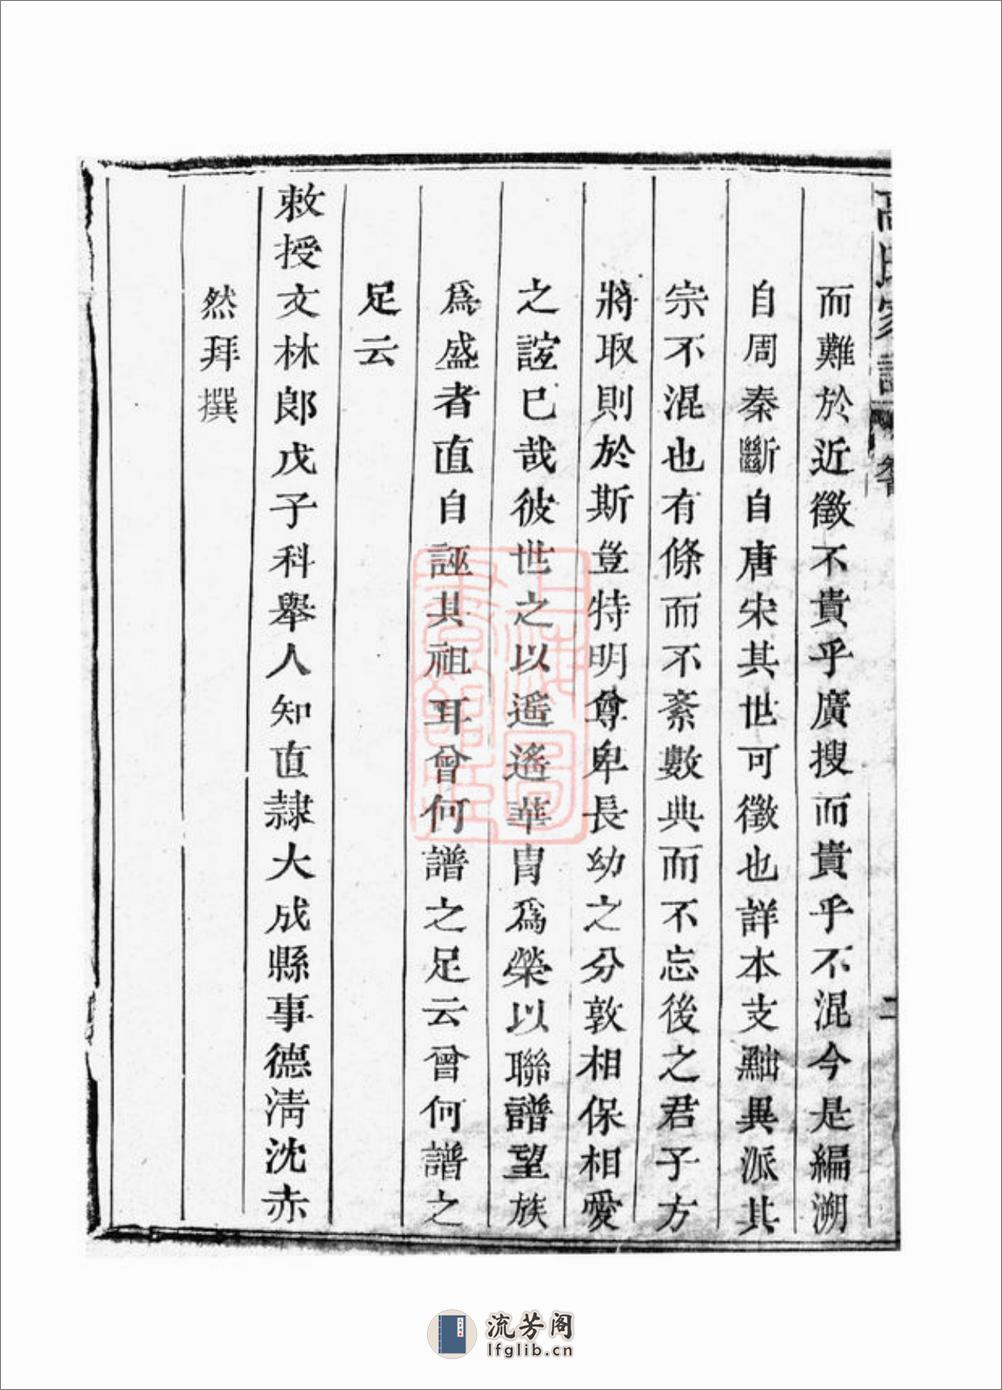 高氏家譜
而難於近徵不貴乎廣搜而貴乎不混今是編溯
自周秦斷自唐宋其世可徵也詳本支黜異派其
宗不混也有條而不紊數典而不忘後之君子方
將取則於斯豈特明尊卑長幼之分敦相保相愛
之誼已哉彼世之以遥遥華胄爲榮以聯譜望族
爲盛者直自誣其祖耳曾何譜之足云曾何譜之
足云
敕授文林郎戊子科舉人知直隷大成縣事德清沈赤
然拜撰
上海圖書館藏
流芳阁
lfglib.cn